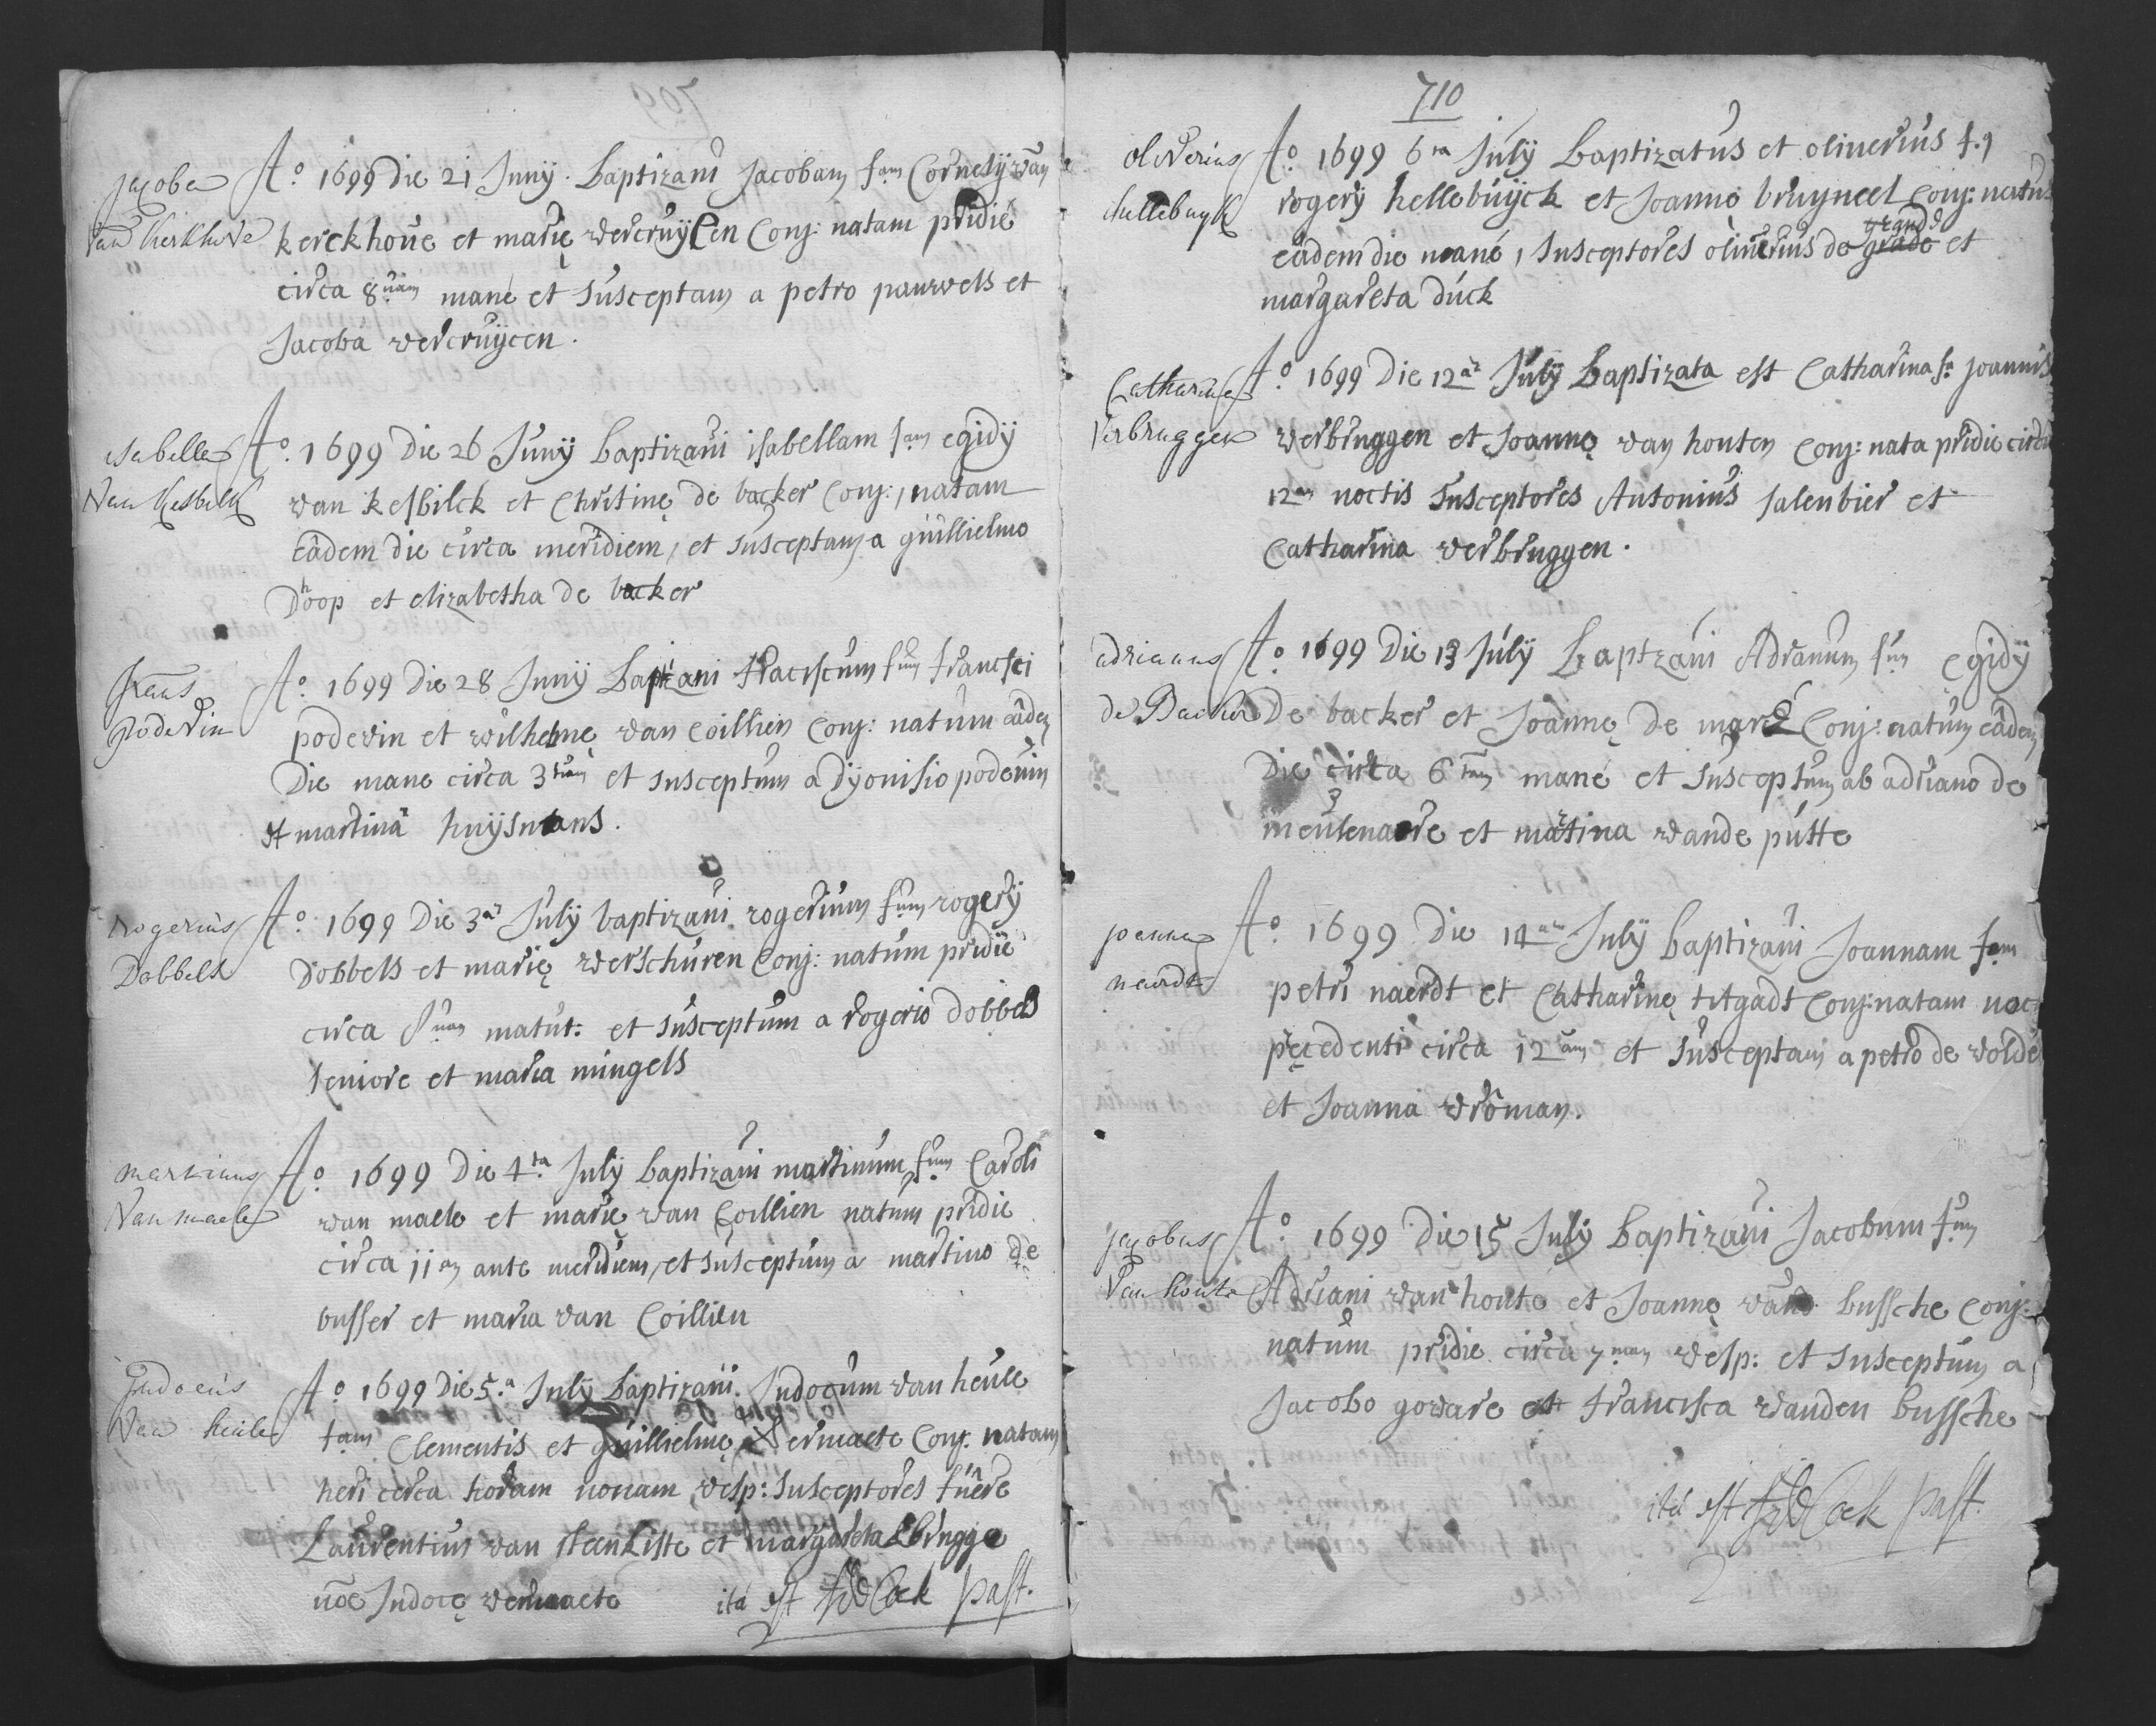 709
jacoba
van Kerkhove
A.o 1699 die 21 Junij baptizavi Jacobam f.am Cornelij van
kerckhoue et marię vercruijcen Conj: natam pridie
circa 8.uam mane et susceptam a petro pauwels et
Jacoba vercruijcen.
isabella
van Kesbilk
A.o 1699 Die 26 Junij baptizaui isabellam f.am egidij
van kesbilck et Christinę de backer Conj:, natam
eâdem die circa meridiem, et susceptam a guillielmo
Dhoop et elizabetha de backer
frans
podevin
A.o 1699 Die 28 Junij Baptizani fraciscum f.um francisci
podevin et wilhelmę van Coillien Conj: natum eâdem
Die mane circa 3.tiam et susceptum a Dyonisio podeuin
et martinâ huijsmans.
rogerius
Dobbels
A.o 1699 Die 3.a Julij baptizaui rogerium f.um rogerij
Dobbels et marię verschuren Conj: natum pridie
circa 8.uam matut: et susceptum a rogerio dobbels
seniore et maria mingels
martinus
van maele
A.o 1699 Die 4.ta Julij baptizaui martinum f.um Caroli
van maele et marię van Coillien natum pridie
circa 11.am ante meridiem, et susceptum a martino de
busser et maria van Coillien
Judocus
van heule
A.o 1699 Die 5.a Julij baptizaui Judocum van heule
f.am Clementis et guillielmę vermaete Conj. natam
heri circa horam nonam vesp: susceptores fuêre
Laurentius van steenkiste et margareta brugge
nõe Judocę vermaete ita est past.
710
oliverius
hellebuyk
A.o 1699 6.ta July Baptizatus et oliuerius f.9
rogerij hellebuijck et Joannę bruyneel Conj: natus
eâdem die mané, susceptores oliuerius de grade et
grande
margareta duck
Catharina
Verbruggen
A.o 1699 Die 12.a Julij Baptizata est Catharina f.a Joannis
verbruggen et Joannę van houten Conj: nata pridie circa
12.am noctis susceptores Antonius salenbier et
Catharina verbruggen.
adrianus
de Backer
A.o 1699 Die 13 Julij Baptzaui Adranum f.um egidij
De backer et Joannę De maré Conj: natum eâdem
Die circa 6.tam mané et susceptum ab adriano de
meulenaere et martina vande putte
joanna
naerdt
A.o 1699 Die 14.a July baptizaui Joannam f.am
petri naerdt et Catharinę titgadt Conj: natam noc
pęcedenti circa 12.am et susceptam a petro de volde
et Joanna vroman.
jacobus
van houte
A.o 1699 Die 15 July Baptizaui Jacobum f.um
Adriani van houte et Joannę vand bussche Conj:
natum pridie circa 7.mam vesp: et susceptum a
Jacobo govare et francisca vanden bussche
ita est past.